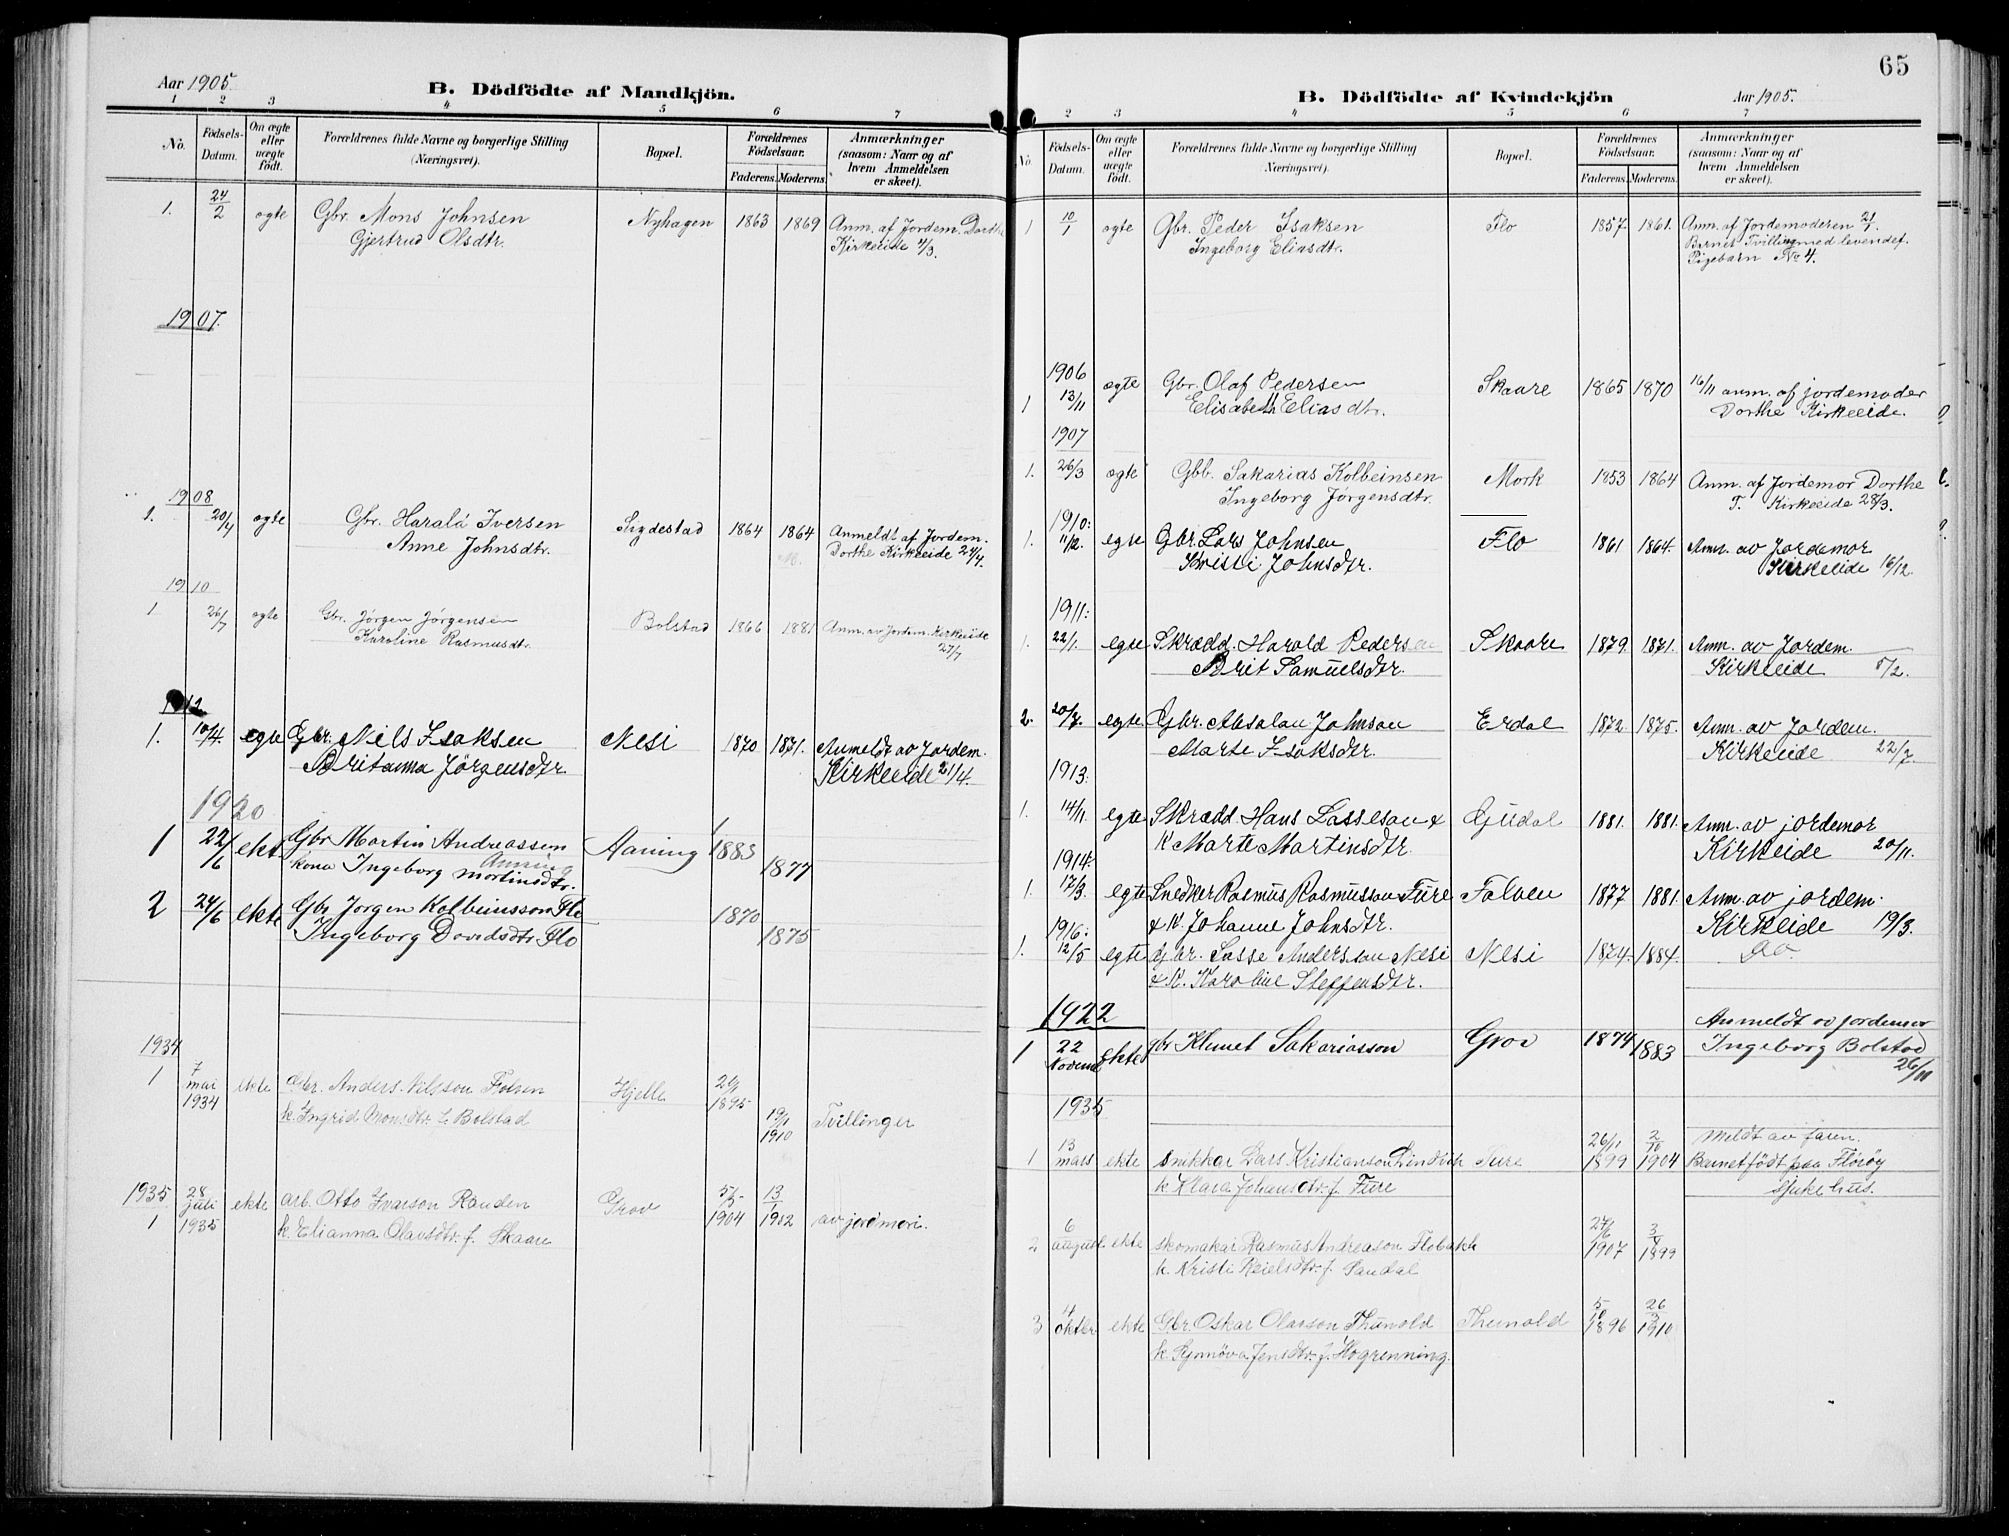 Aar 1905.
B. Dödfödte af Mandkjön.
1 2 3 4 5 6 7
No. Födsels-Datum. Om ægte eller uægte født. Forældrenes fulde Navne og borgerlige Stilling (Næringsvei). Bopæl. Forældrenes Födselsaar. Faderens. Moderens. Anmærkninger (saasom: Naar og af hvem Anmeldelsen er skeet).
1. 24/2 ægte Gbr. Mons Johnsen Nyhagen 1863 1869 Anm. af Jordem. Dorthe
Gjertrud Olsdtr. Kirkeeide 4/3.
1907.
1908
1. 20/4 ægte Gbr. Harald Iversen Sigdestad 1864 1864 Anmeldt af Jordem.
Anne Johnsdtr. Dorthe Kirkeeide 24/4.
1910
1 26/7 ægte Gbr. Jørgen Jørgensen Bolstad 1866 1881 Anm. av Jordem. Kirkeeide
Karoline Rasmusdtr. 27/7
1912
1. 10/4. egte Gbr. Nels Isaksen Nesi 1870 1871. Anmeldt av Jordem.
Britanna Jørgensdtr. Kirkeeide 21/4.
1920
1 22/6 ekte Gbr Martin Andreassen Aaning 1883
kona Ingeborg Martinsdtr. Aaning 1877
2 24/6 ekte Gbr Jørgen Kolbeinsson Flo 1870
Ingeborg Davidsdtr. Flo 1875
1934
1 7 mai 1934 ekte Gbr. Anders Nilsson Folven Hjelle 1895
k. Ingrid Monsdtr. f. Bolstad 19/1 1910 Tvillinger
1935. 28 juli ekte arb. Otto Ivarson Randen Grov 1904 13/1 1902 av jordmori.
1 1935 k. Elianna Olavsdtr. f. Skaare
65
B. Dödfödte af Kvindekjön
Aar 1905.
2 3 4 5 6 7
No. Födsels-Datum. Om ægte eller uægte født. Forældrenes fulde Navne og borgerlige Stilling (Næringsvei). Bopæl. Forældrenes Födselsaar. Faderens. Moderens. Anmærkninger (saasom: Naar og af hvem Anmeldelsen er skeet).
1 10/1 ægte Gbr. Peder Isaksen Flo 1857 1861. Anm. af Jordemoderen 21/1.
Ingeborg Eliasdtr. Barnet Tvilling med levendef.
Pigebarn No 4.
1906
1 13/11 ægte Gbr. Olaf Pedersen Skaare 1865 1870 16/11 anm. af jordemoder
Elisabeth Eliasdtr. Dorthe Kirkeeide.
1907
1. 26/3 ægte Gbb. Sakarias Kolbeinsen Mork 1853 1864 Anm. af Jordemor Dorthe
Ingeborg Jørgensdtr. T. Kirkeeide 28/3.
1910:
1. 11/12. egte Gbr. Lars Johnsen Flo 1861 1864. Anm. av Jordemor
Kristi Johnsdtr. Kirkeeide 16/12.
1911:
1. 22/1. egte Skrædd. Harald Pedersen Skaare 1879. 1871. Anm. av Jordem.
Brit Samuelsdtr. Kirkeeide 5/2.
2. 20/7. egte Gbr. Absalon Johnson Erdal 1872. 1875. Anm. av Jordem.
Marte Isaksdtr. Kirkeeide 22/7
1913.
1. 14/11. egte Skrædd Hans Lasseson & Gjudal 1881. 1881. Anm. av jordemor
K Marte Martinsdtr. Kirkeeide 20/11.
1914:
1. 17/3. egte Snedker Rasmus Rasmusson Fure Folven 1877 1881. Anm. av jordem.
& K. Johanne Johnsdtr. Kirkeeide 19/3.
1916:
1. 12/5 egte gbr. Lasse Andersson Nesi Nesi 1874. 1884. Do.
& K. Karoline Steffensdtr.
1922
Anmeldt av jordemor
1 22 Novemb. ekte gbr Klemet Sakariasson Grov 1874 1883 Ingeborg Bolstad
26/11
1935
1 13 mars ekte snikkar Lars Kristianson Lindvik Fure 26/11 1899 2/10 1904 Meldt av faren.
k Klara Johansdtr. f. Fure Barnet födt paa Florøy
sjukehus.
2 6 august ekte skomakar Rasmus Andreason Flobakk 1907 1899
k. Kristi Reielsdtr. f. Sandal
3 4 oktbr ekte Gbr. Oskar Olavson Thunold Thunold 5/10 1896 26/3 1910
k. Synnöva Jensdtr. f. Høgrenning.